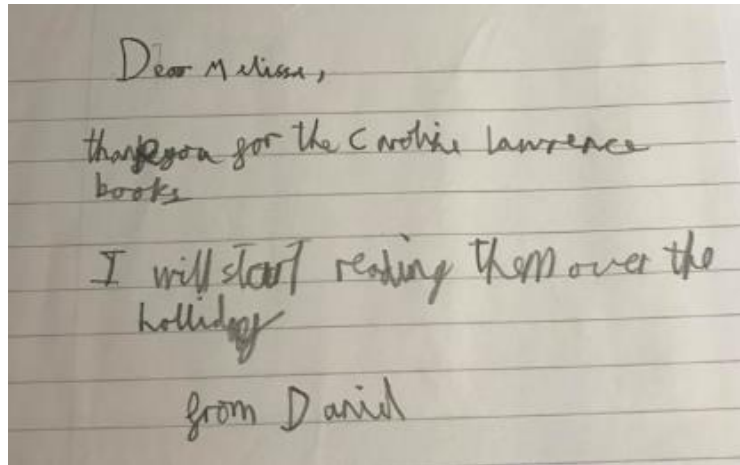 Dear Melissa,
thankyou for the Caroline Lawrence
books
I will start reading them over the
holliday
from Daniel